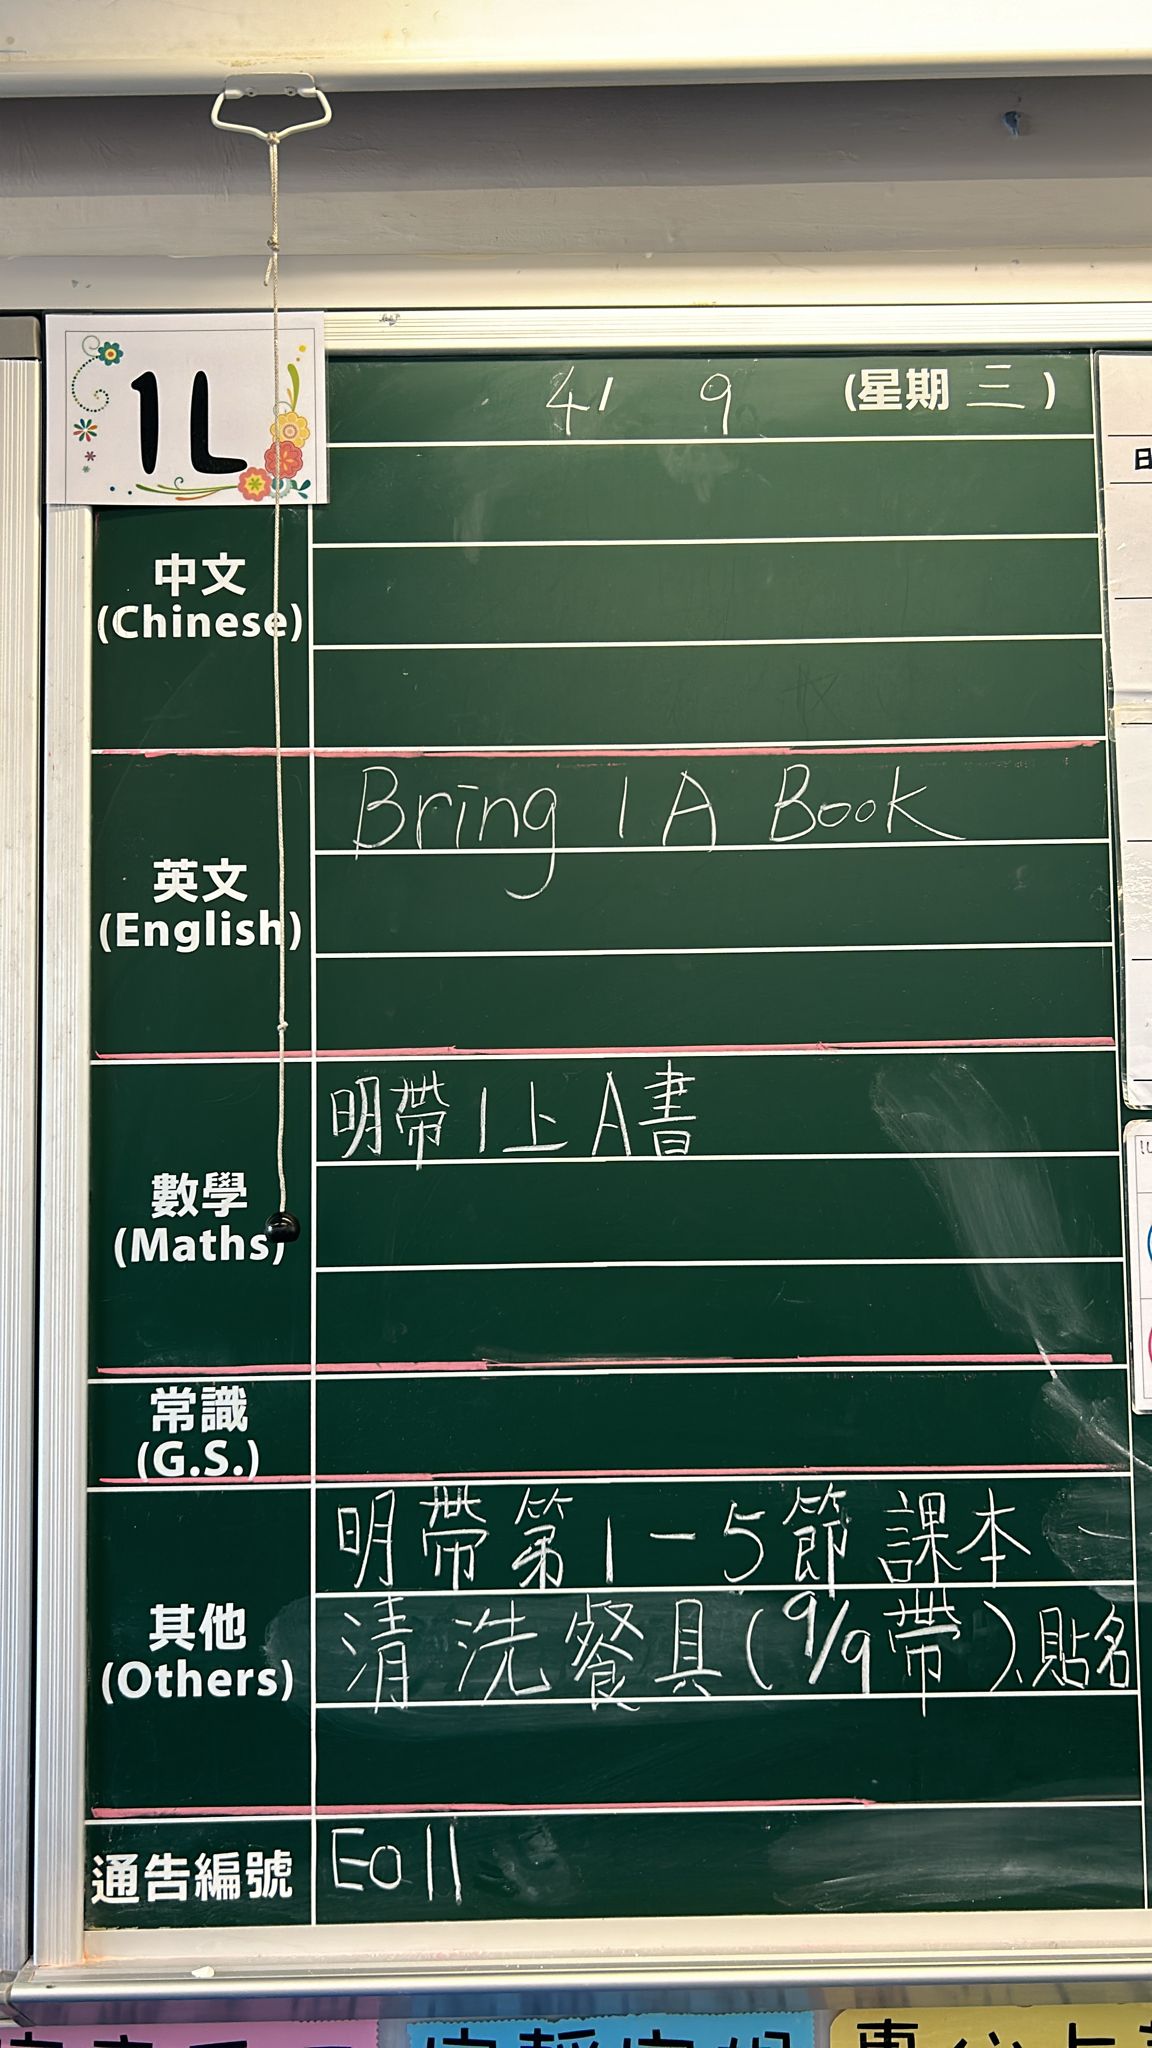 1L
4 9 (星期三)
中文
(Chinese)
英文
(English)
Bring 1A Book
數學
(Maths)
明帶1上A書
常識
(G.S.)
其他
(Others)
明帶第1-5節課本
清洗餐具(9/9帶)、貼名
通告編號
E011